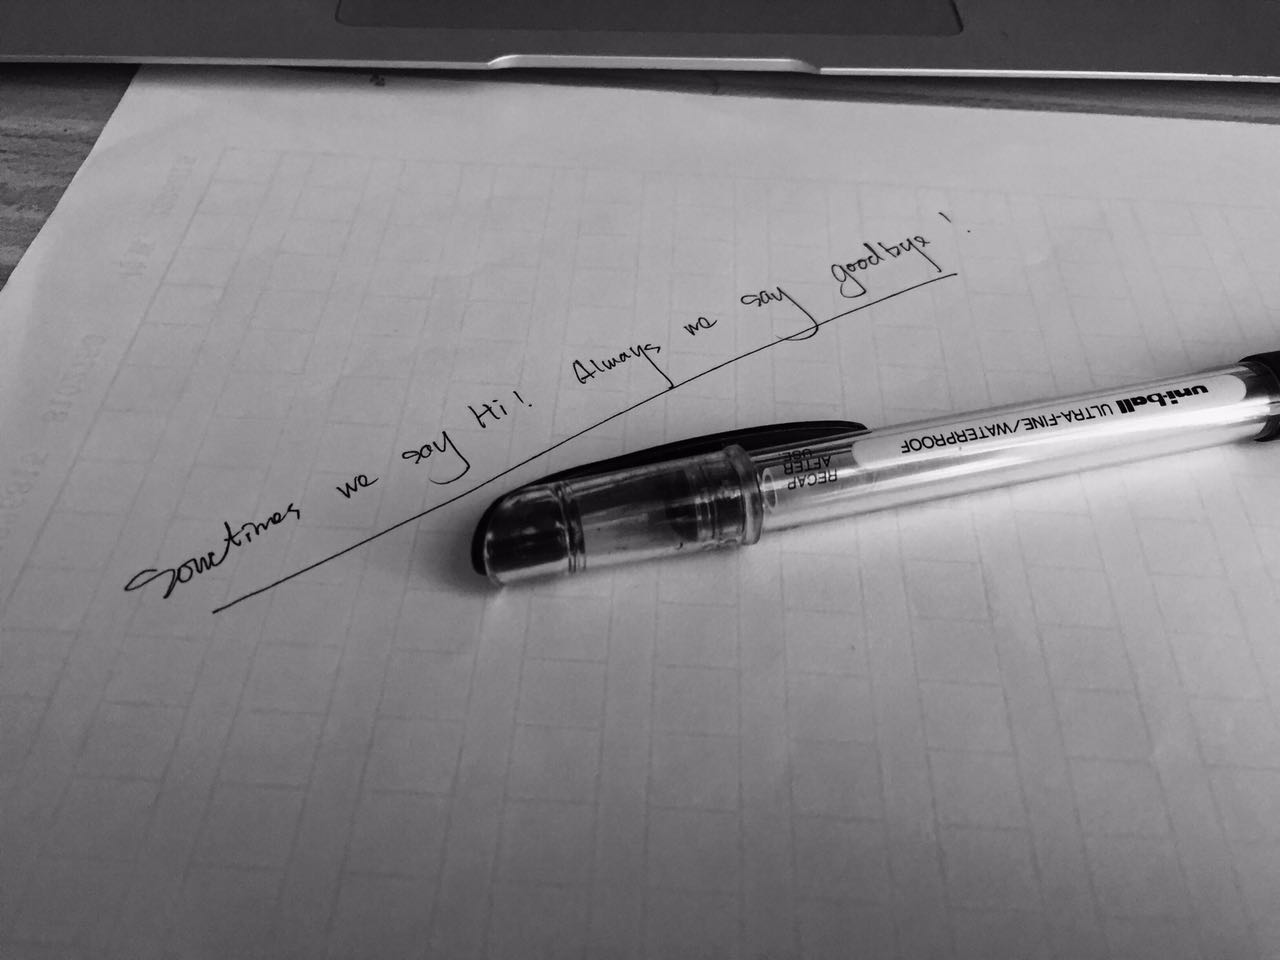 Sometimes we say Hi! Always we say goodbye!
uni-ball ULTRA-FINE/WATERPROOF
RECAP
AFTER
USE.